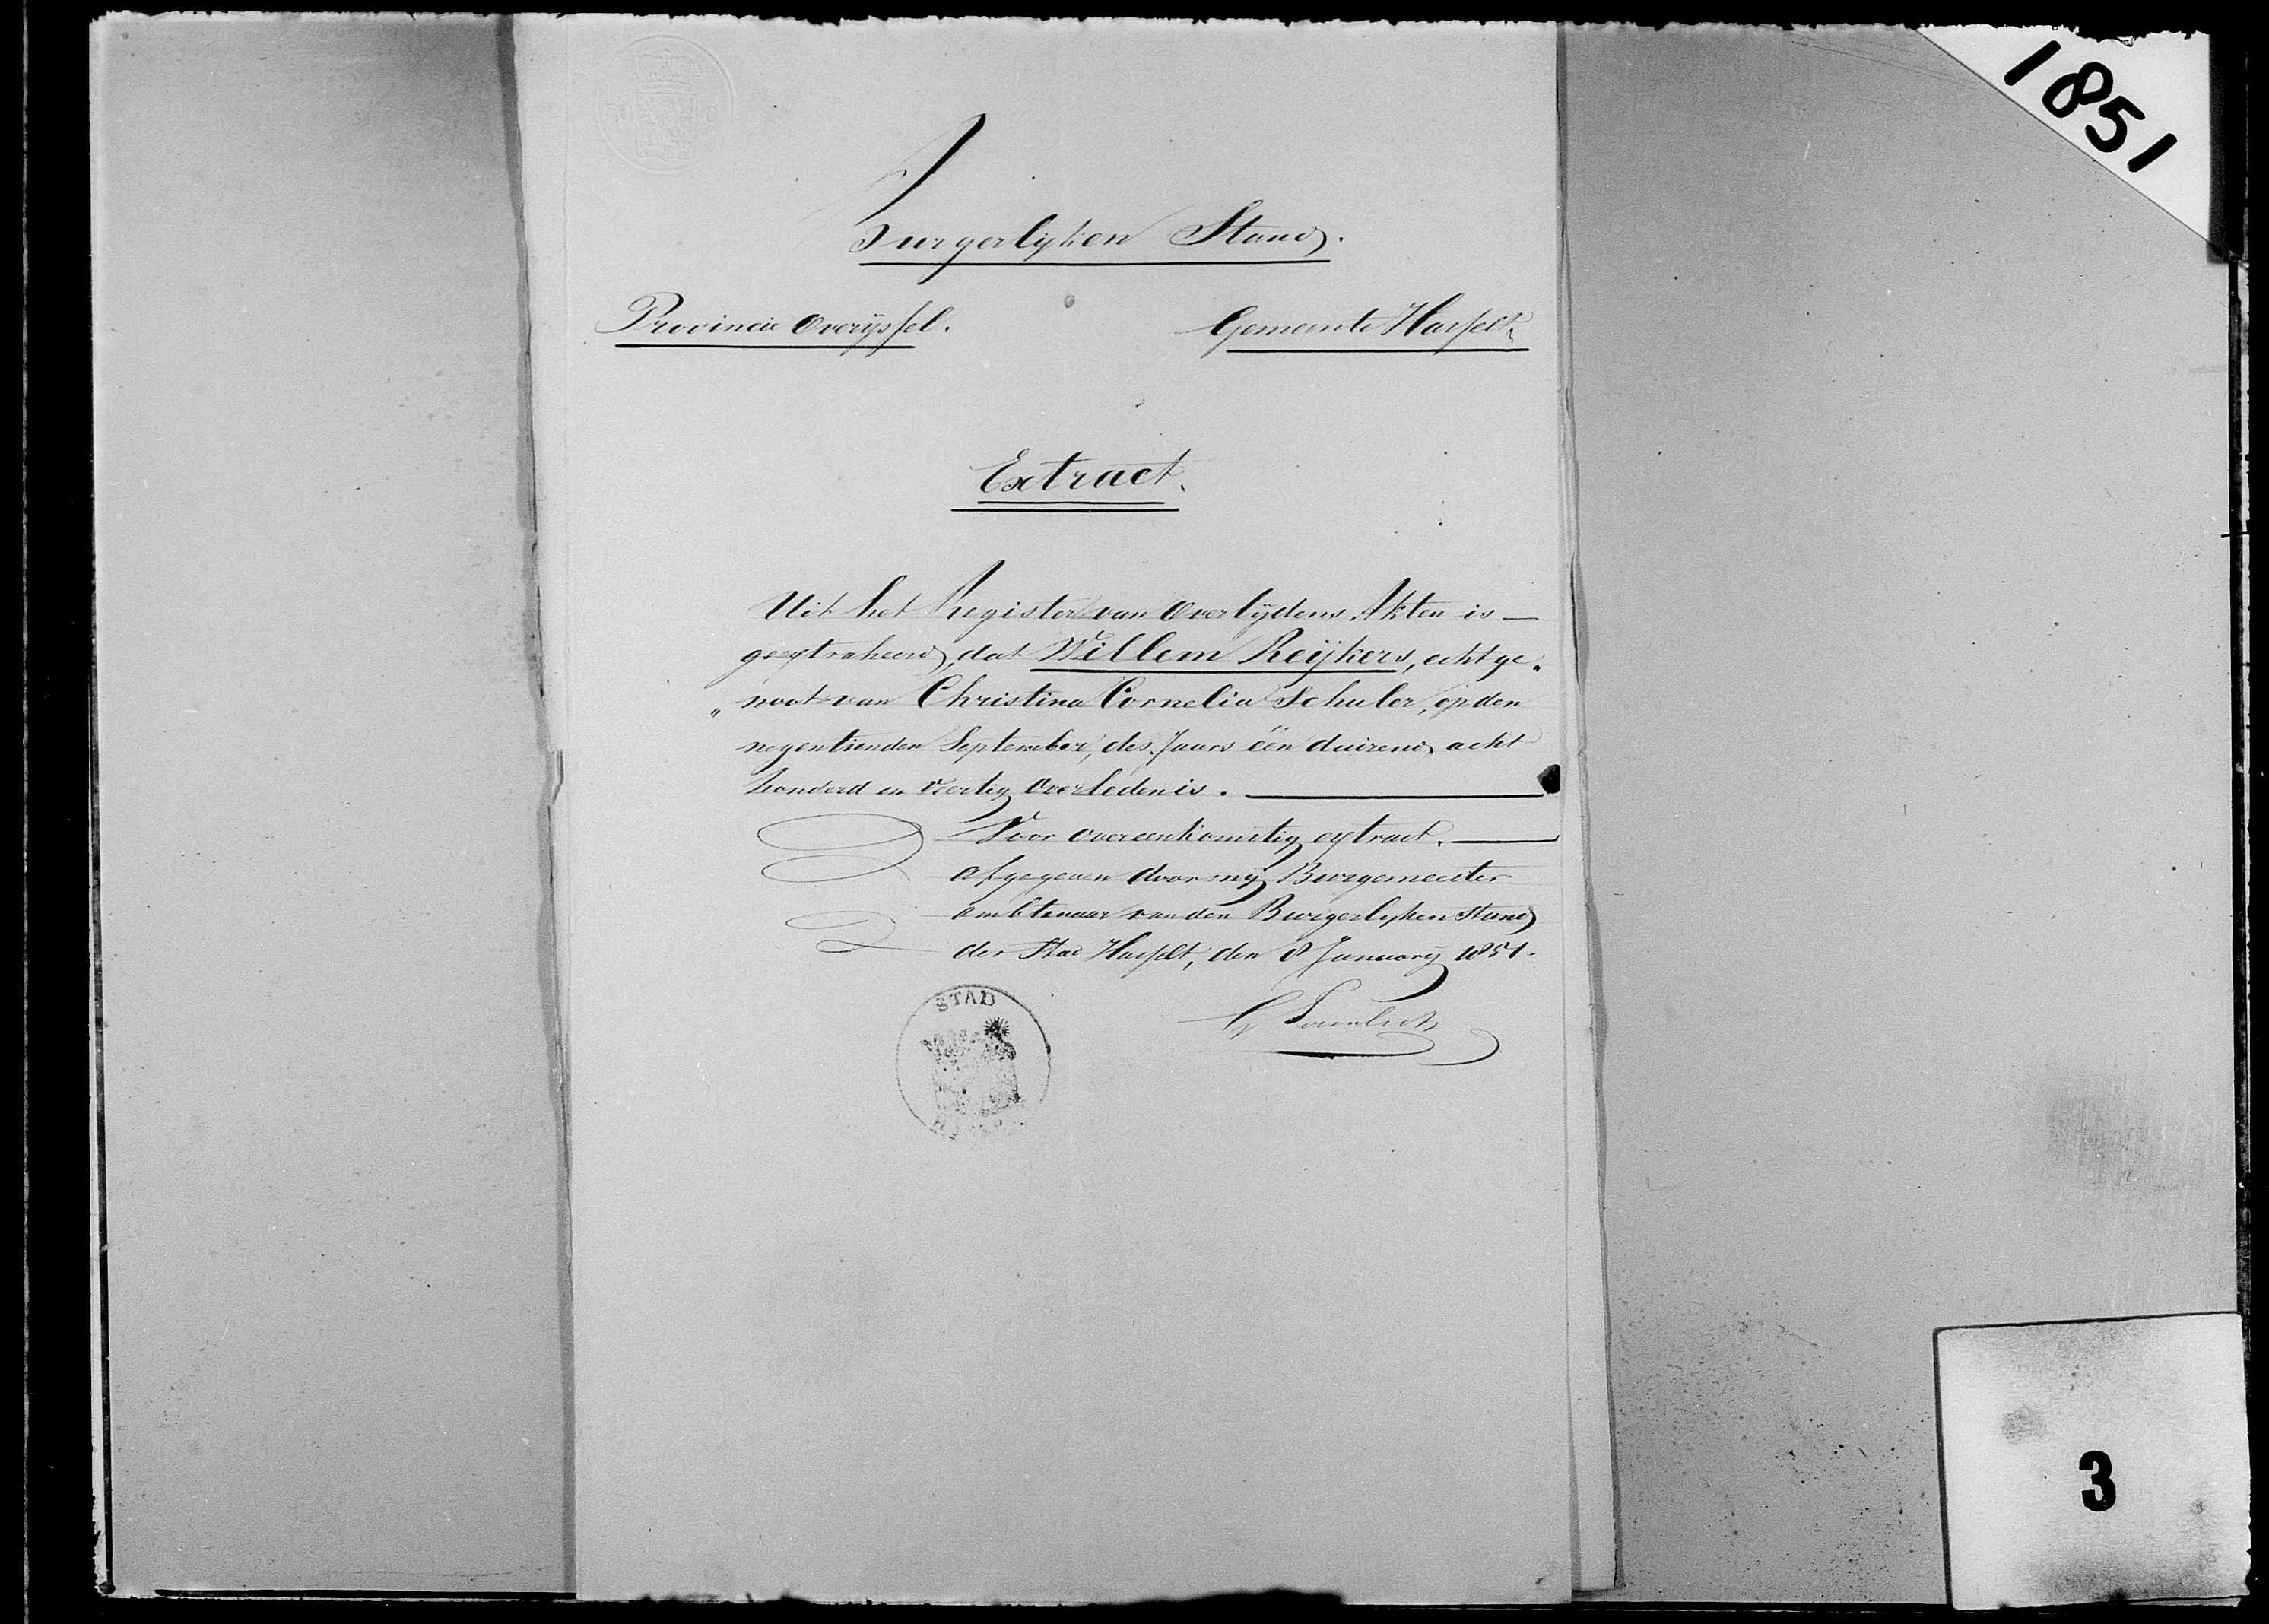 1851
Burgerlijken Stand.
Provincie Overijssel.
Gemeente Hasselt
Extract.
Uit het Register van Overlijdens Akten is
geextraheerd, dat Willem Reijkers, echtge„
„noot van Christina Cornelia Schuler, op den
negentienden September, des Jaars één duizend acht
honderd en veertig overleden is.
Voor overeenkomstig extract.
afgegeven door mij Burgemeester
ambtenaar van den Burgerlijken Stand
der Stad Hasselt, den 8 Januarij 1851.
STAD
3